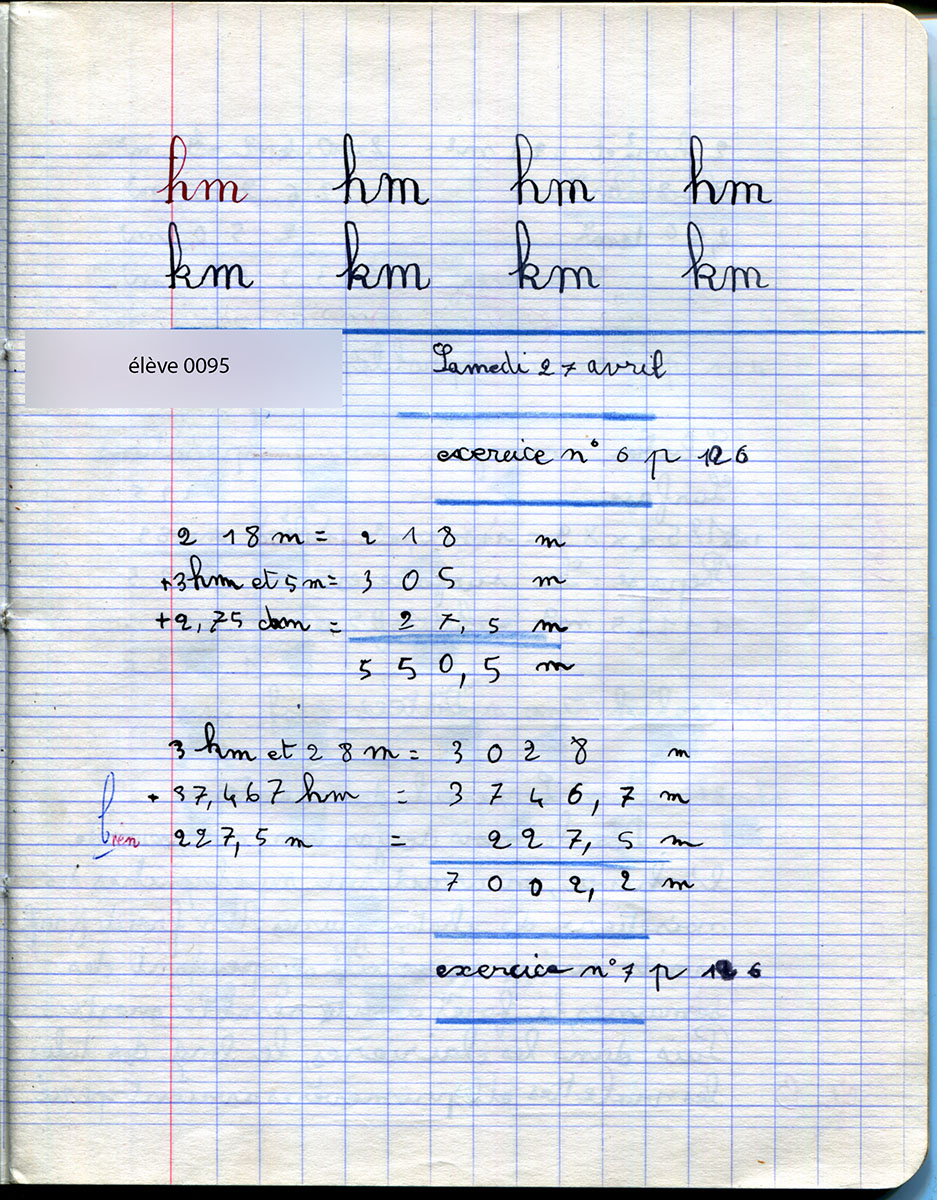 hm hm hm hm
km km km km
élève 0095
Samedi 27 avril
exercice n° 6 p 126
218 m = 218 m
+3hm et 5 m = 305 m
+2,75 dam = 27,5 m
550,5 m
3 km et 28 m = 3028 m
+ 37,467 hm = 3746,7 m
bien
227,5 m = 227,5 m
7002,2 m
exercice n° 7 p 126